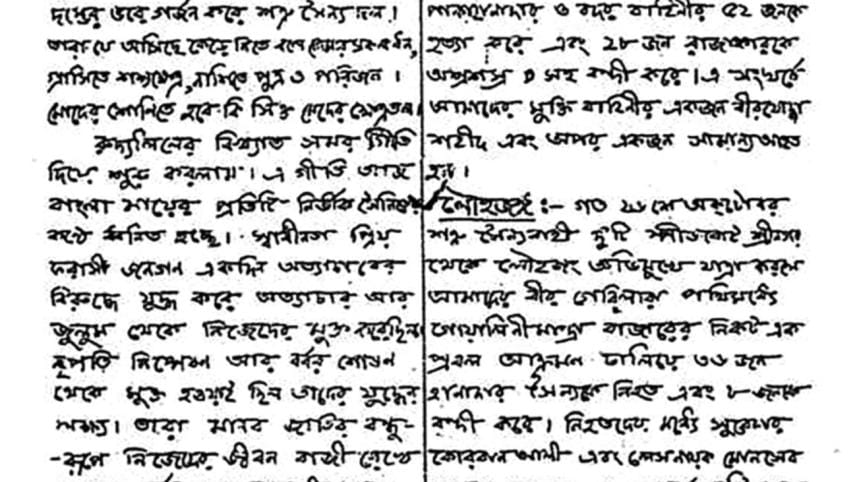 দম্ভের ভরে গর্জন করে শত্রু সৈন্যদল।
তারা যে আসিছে কেড়ে নিতে
গ্রাসিতে শস্যক্ষেত্র, নাশিতে পুত্র ও পরিজন।
মোদের শোনিতে হবে কি সিক্ত মোদের
বিখ্যাত সমর গীতি
দিয়ে শুরু করলাম। এ গীতি আজ
বাংলা মায়ের প্রতিটি নির্ভীক সৈনিকের
কণ্ঠে ধ্বনিত হচ্ছে। স্বাধীনতা প্রিয়
ফরাসী জনগন একদিন অত্যাচারের
বিরুদ্ধে যুদ্ধ করে অত্যাচার আর
জুলুম থেকে নিজেদের মুক্ত করেছিল।
নৃপতি নিষ্পেষণ আর বর্বর শোষণ
থেকে মুক্ত হওয়াই ছিল তাদের যুদ্ধের
লক্ষ্য। তারা মানব জাতির বন্ধু-
-রূপে নিজেদের জীবন বাজী রেখে
ও বদর বাহিনীর ৫২ জনকে
হত্যা করে এবং ২৮ জন রাজাকারকে
অস্ত্রশস্ত্র সহ বন্দী করে। এ সংঘর্ষে
আমাদের মুক্তি বাহিনীর একজন বীরযোদ্ধা
শহীদ এবং অপর একজন সামান্য আহত
হন।
লৌহজং :- গত ২৬ শে অক্টোবর
শত্রু সৈন্যবাহী দুটি স্পীডবোট শ্রীনগর
থেকে লৌহজং অভিমুখে যাত্রা করলে
আমাদের বীর গেরিলারা পথিমধ্যে
গোয়ালিনীমান্দ্রা বাজারের নিকট এক
প্রবল আক্রমন চালিয়ে ৩৬ জন
হানাদার সৈন্যকে নিহত এবং ৮ জনকে
বন্দী করে। নিহতদের মধ্যে সুবেদার
কোরবান আলী এবং